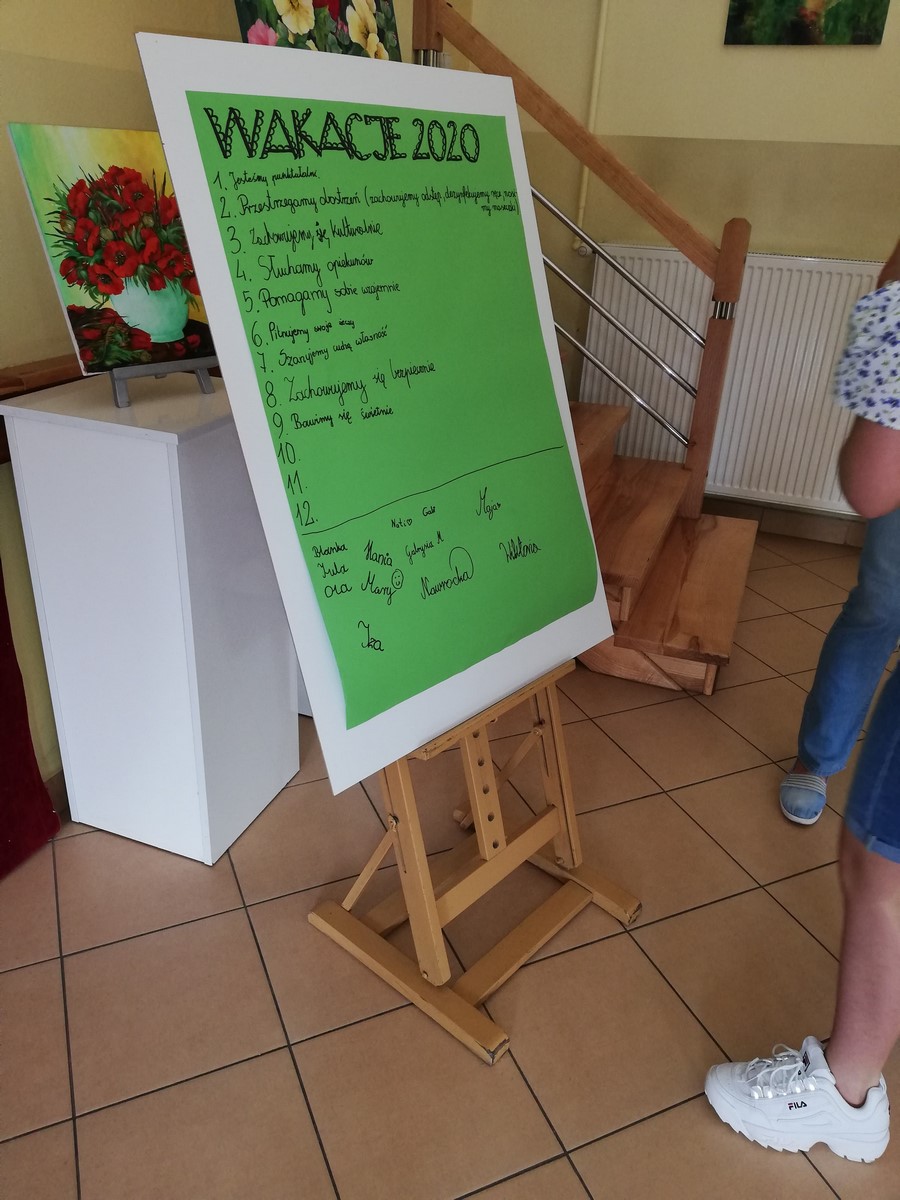 WAKACJE 2020
1. Jesteśmy punktualni.
2. Przestrzegamy obostrzeń (zachowujemy odstęp, dezynfekujemy ręce, nosi-
my maseczki)
3. Zachowujemy się kulturalnie
4. Słuchamy opiekunów
5. Pomagamy sobie wzajemnie
6. Pilnujemy swoje rzeczy
7. Szanujemy cudzą własność
8. Zachowujemy się bezpiecznie
9. Bawimy się świetnie
10.
11.
12.
Nati Gabi Maja
Blanka Hania Gabrysia M. Wiktoria
Julia
Ola Mary Nawrocka
Iza
FILA